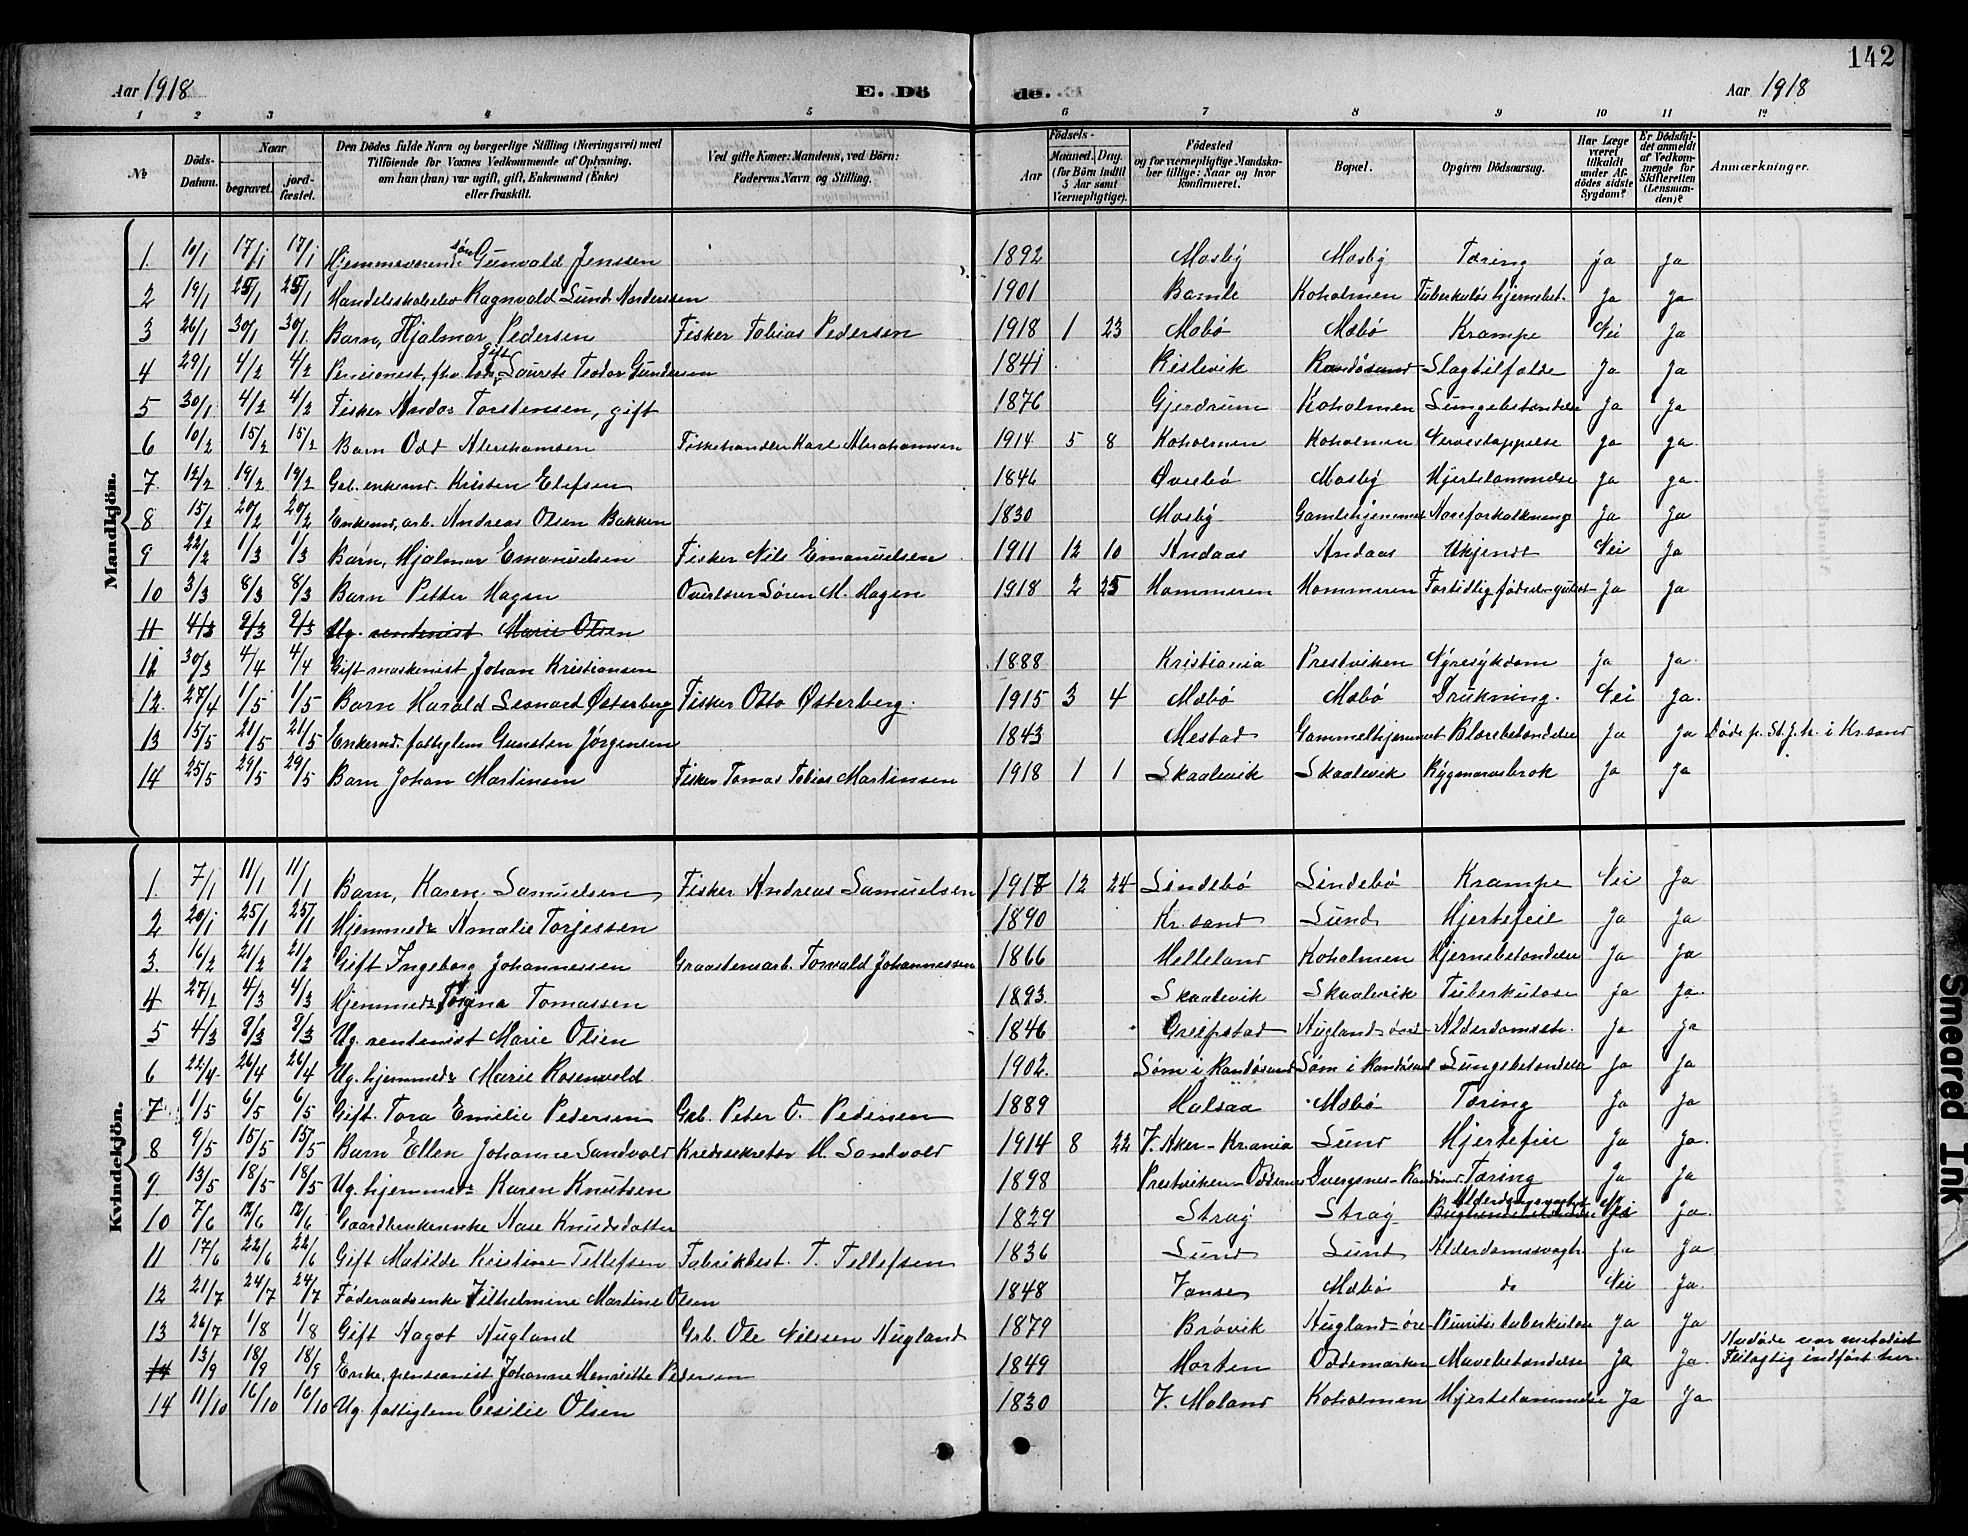 142
Aar 1918 E. Dö de. Aar 1918
1 2 3 4 5 6 7 8 9 10 11 12
No Döds-Datum. Naar begravet. jord-fæstet. Den Dödes fulde Navn og borgerlige Stilling (Næringsvei) med Tilföiende for Voxnes Vedkommende af Oplysning, om han (hun) var ugift, gift, Enkemand (Enke) eller fraskilt. Ved gifte Koner: Mandens, ved Börn: Faderens Navn og Stilling. Födsels- Aar Maaned. Dag. (for Börn indtil 3 Aar samt Værnepligtige). Födested og for værnepligtige Mandska-ber tillige: Naar og hvor konfirmeret. Bopæl. Opgiven Dödsaarsag. Har Læge været tilkaldt under Af-dödes sidste Sygdom? Er Dödsfal-det anmeldt af Vedkom-mende for Skifteretten (Lensman-den)? Anmærkninger.
Mandkjön.
1. 10/1 17/1 17/1 Hjemmeværende søn Gunvald Jenssen 1892 Mosby Mosby Tæring ja ja
2 19/1 25/1 25/1 Ragnvald Lund 1901 Bamle Koholmen Tuberkuløs hjernebet. Ja Ja
3 26/1 30/1 30/1 Barn, Hjalmar Pedersen Fisker Tobias Pedersen 1918 1 23 Mæbø Mæbø Krampe Nei Ja
4 29/1 4/2 4/2 Pensionist, fhv. lods, gift Laurits Teodor Gundersen 1841 Kislevik Randøsund Slagtilfælde Ja Ja
5 30/1 4/2 4/2 Fisker Andor Torstensen, gift 1876 Gjerdrum Koholmen Lungebetændelse Ja Ja
6 10/2 15/2 15/2 Barn Odd Abrahamsen Fiskehandler Karl Abrahamsen 1914 5 8 Koholmen Koholmen Ja ja
7 12/2 19/2 19/2 Grb. enkemd. Kristen Elefsen 1846 Øvrebø Mosby Hjertelammelse Ja ja.
8 15/2 20/2 20/2 Enkemd, arb. Andreas Olsen Bakken 1830 Mosby Gamlehjemmet Aareforkalkning Ja Ja
9 22/2 1/3 1/3 Barn, Hjalmar Emanuelsen Fisker Nils Emanuelsen 1911 12 10 Andaas Andaas Ukjendt Nei Ja
10 3/3 8/3 8/3 Barn Petter Hagen Overlærer Søren M. Hagen 1918 2 25 Hommeren Hommeren Fortidlig fødsel Ja Ja
11 4/3 9/3 9/3 Ug. rentenist Marie Olsen
11 30/3 4/4 4/4 Gift maskenist Johan Kristiansen 1888 Kristiania Prestviken Nyresykdom Ja Ja.
12. 27/4 1/5 1/5 Barn Harald Leonard Østerberg Fisker Otto Østerberg. 1915 3 4 Mæbø Mæbø Drukning. Nei Ja.
13 15/5 21/5 21/5 Enkemd. fattiglem Gunsten Jørgensen 1843 Mestad Gammelhjemmet Blærebetændelse Ja Ja Døde p. St. J. h. i Kr.sand
14 25/5 29/5 29/5 Barn Johan Martinsen Fisker Tomas Tobias Martinsen 1918 1 1 Skaalevik Skaalevik Rygmarvsbrok Ja Ja
Kvindekjön.
1. 7/1 11/1 11/1 Barn, Karen Samuelsen Fisker Andreas Samuelsen 1917 12 24 Lindebø Lindebø Krampe Nei Ja
2 20/1 25/1 25/1 Hjemmedr. Amalie Torjessen 1890 Kr.sand Lund Hjertefeil Ja Ja
3. 16/2 21/2 21/2 Gift Ingeborg Johannessen Graastensarb. Torvald Johannessen 1866 Helleland Koholmen Hjernebetændelse Ja Ja
4 27/2 4/3 4/3 Hjemmedr Torgina Tomassen 1893 Skaalevik Skaalevik Tuberkulose Ja Ja.
5 4/3 9/3 9/3 Ug. rentenist Marie Olsen 1846 Greipstad Augland - øvre Alderdomssv. Ja Ja
6 22/4 26/4 26/4 Ug. hjemmedr Marie Rosenvold 1902. Søm i Randøsund Søm i Randøsund Lungebetændelse Ja Ja
7 1/5 6/5 6/5 Gift. Tora Emilie Pedersen Grb. Peter O. Pedersen 1889 Halsaa Mæbø Tæring Ja Ja
8 9/5 15/5 15/5 Barn Ellen Johanne Sandvold Kredssekretær M. Sandvold 1914 8 22 V. Aker - Krania Lund Hjertefeil Ja Ja.
9. 13/5 18/5 18/5 Ug. hjemmedr Karen Knutsen 1898 Prestviken - Oddernes Dvergsnes - Randøsund Tæring Ja Ja
10 7/6 12/6 12/6 Gaardbrukerenke Aase Knudsdatter 1829 Stray Stray Nei Ja.
11 17/6 22/6 22/6 Gift Matilde Kristine Tellefsen Fabrikbest. T. Tellefsen 1836 Lund Lund Alderdomssvagh. Ja Ja
12 21/7 24/7 24/7 Føderaadsenke Vilhelmine Martine Olsen 1848 Vanse Mæbø do Nei Ja.
13 26/7 1/8 1/8 Gift Aagot Augland Grb. Ole Nilssen Augland 1879 Brøvik Augland - øvre Pleurites tuberkuløse Ja Ja
14 13/9 18/9 18/9 Enke, pensionist Johanne Henriette Pedersen 1849 Morten Oddemarken Mavebetændelse Ja Ja. Avdøde var metodist Feilagtig indført her.
14 11/10 16/10 16/10 Ug. fattiglem Cesilie Olsen 1830 V. Moland Koholmen Hjertelammelse Ja Ja
Smeared Ink